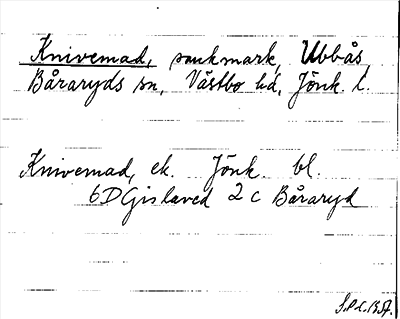 Knivemad, sankmark, Ubbås,
Båraryds sn, Västbo hd, Jönk. l.
Knivemad, ek. Jönk. bl.
6D Gislaved 2 c Båraryd